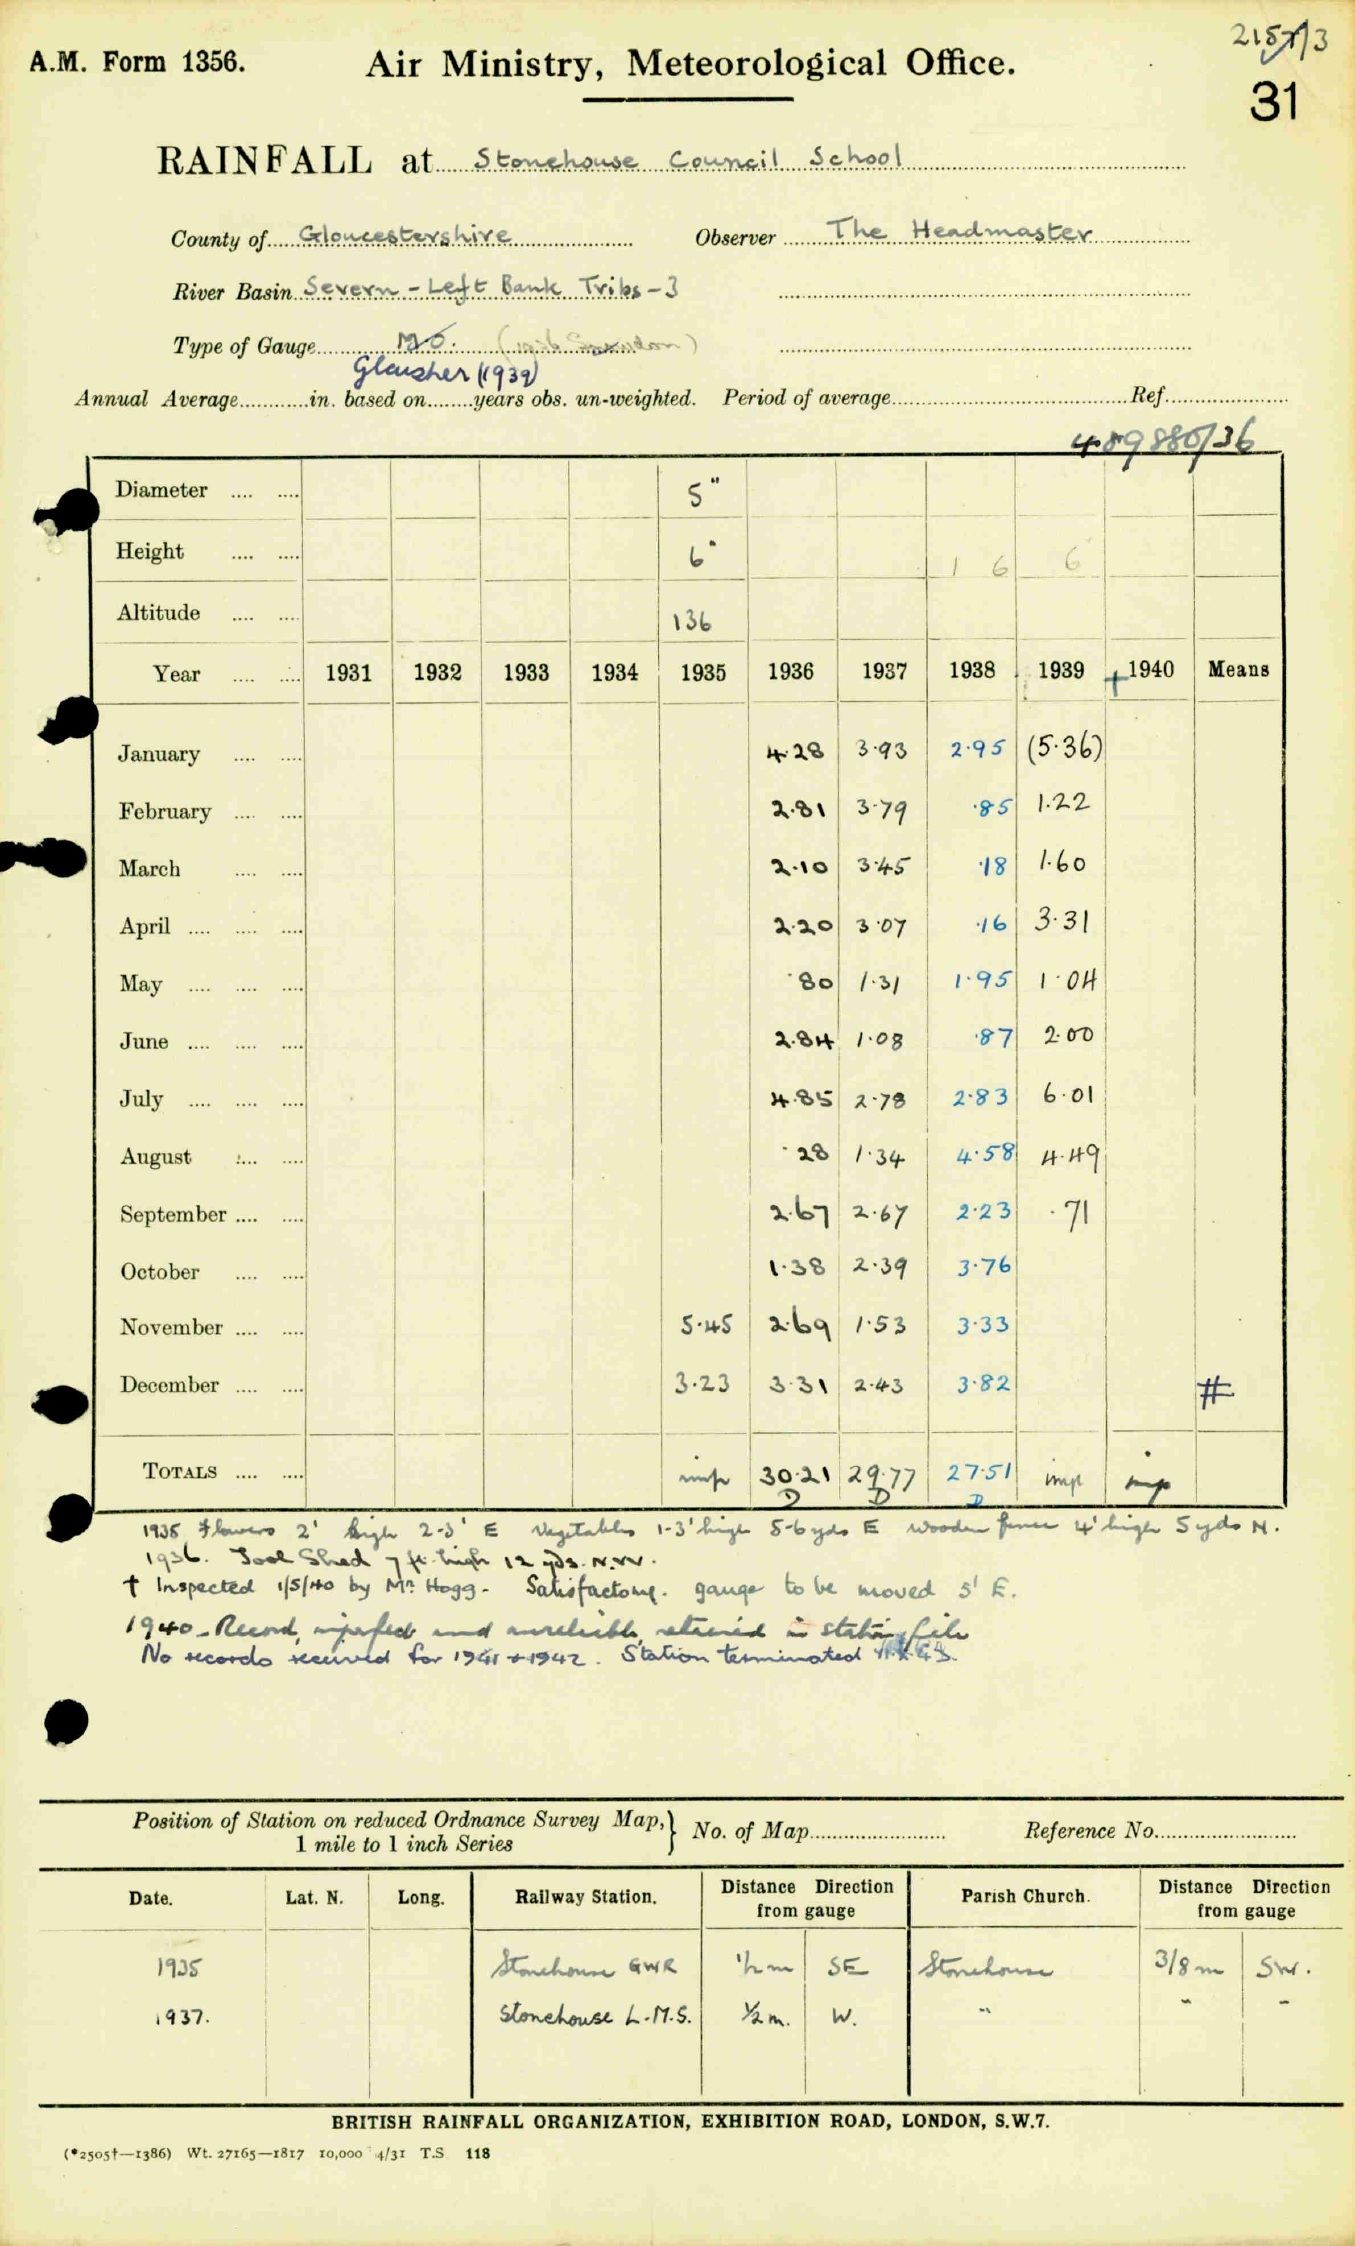 A.M. Form 1356.
Air Ministry, Meteorological Office.
31
RAINFALL at Stonehouse Council School
County of Gloucestershire Observer The Headmaster
River Basin Severn - Left Bank Tribs - 3
Type of Gauge M.O. (1936 Snowdon)
Glaisher (1939)
Annual Average in. based on years obs. un-weighted. Period of average Ref.
Diameter 5"
Height 6" 1 6 6
Altitude 136
Year 1931 1932 1933 1934 1935 1936 1937 1938 1939 † 1940 Means
January 4.28 3.93 2.95 (5.36)
February 2.81 3.79 .85 1.22
March 2.10 3.45 .18 1.60
April 2.20 3.07 .16 3.31
May .80 1.31 1.95 1.04
June 2.84 1.08 .87 2.00
July 4.85 2.78 2.83 6.01
August .28 1.34 4.58 4.49
September 2.67 2.67 2.23 .71
October 1.38 2.39 3.76
November 5.45 2.69 1.53 3.33
December 3.23 3.31 2.43 3.82 #
TOTALS imp 30.21 29.77 27.51 imp imp
D D D
1935 Flowers 2' high 2-3' E Vegetables 1-3' high 5-6 yds E wooden fence 4' high 5 yds N.
1936. Tool Shed 7 ft. high 12 yds. N.W.
† Inspected 1/5/40 by Mr Hogg - Satisfactory. gauge to be moved 5' E.
1940 - Record, imperfect and unreliable, retained in station file
No records received for 1941 + 1942. Station terminated
Position of Station on reduced Ordnance Survey Map, } No. of Map Reference No.
1 mile to 1 inch Series
Date. Lat. N. Long. Railway Station. Distance Direction from gauge Parish Church. Distance Direction from gauge
1935 Stonehouse GWR 1/2 m SE Stonehouse 3/8 m SW.
1937. Stonehouse L.M.S. 1/2 m. W. " " "
BRITISH RAINFALL ORGANIZATION, EXHIBITION ROAD, LONDON, S.W.7.
(*2505†—1386) Wt. 27165—1817 10,000 4/31 T.S 118